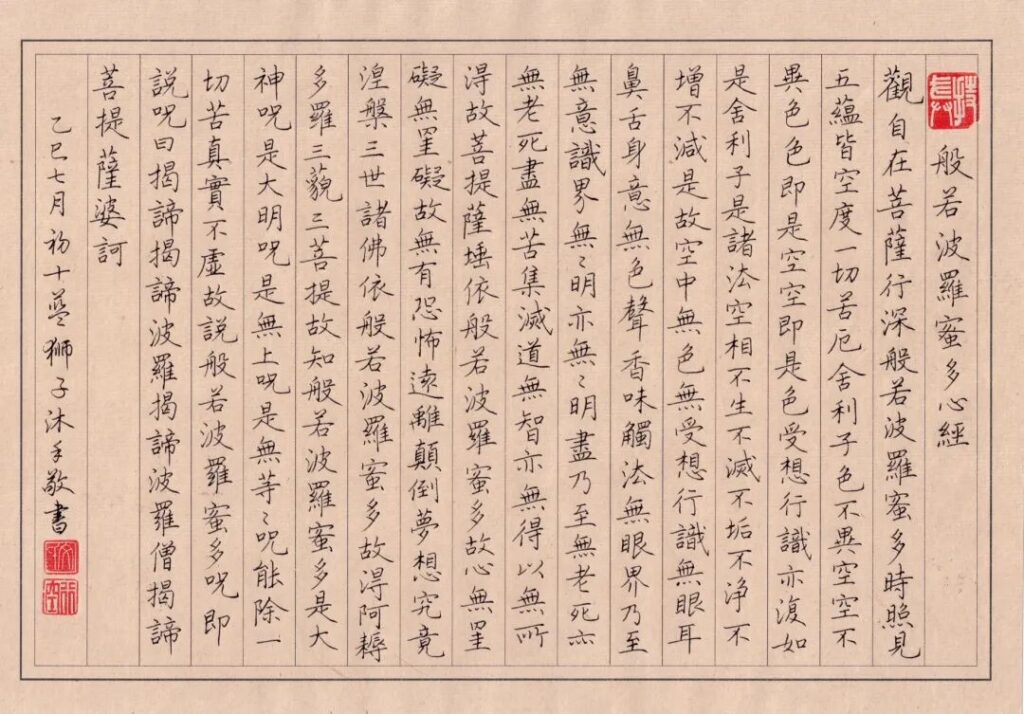 般若波羅蜜多心經
觀自在菩薩行深般若波羅蜜多時照見
五蘊皆空度一切苦厄舍利子色不異空空不
異色色即是空空即是色受想行識亦復如
是舍利子是諸法空相不生不滅不垢不净不
增不減是故空中無色無受想行識無眼耳
鼻舌身意無色聲香味觸法無眼界乃至
無意識界無〻明亦無〻明盡乃至無老死亦
無老死盡無苦集滅道無智亦無得以無所
得故菩提薩埵依般若波羅蜜多故心無罣
礙無罣礙故無有恐怖遠離顛倒夢想究竟
涅槃三世諸佛依般若波羅蜜多故得阿耨
多羅三藐三菩提故知般若波羅蜜多是大
神呪是大明呪是無上呪是無等〻呪能除一
切苦真實不虛故説般若波羅蜜多呪即
説呪曰揭諦揭諦波羅揭諦波羅僧揭諦
菩提薩婆訶
乙巳七月初十蓝狮子沐手敬書